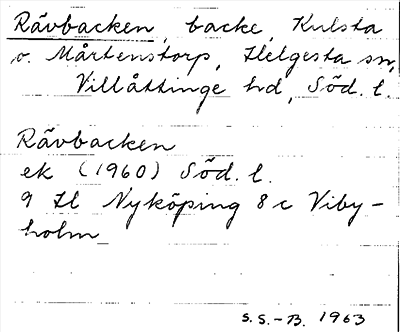 Rävbacken, backe, Kulsta
o. Mårtenstorp, Helgesta sn,
Villåttinge hd, Söd. l.
Rävbacken
ek (1960) Söd. l.
9 H Nyköping 8 c Viby-
holm
S.S.-B. 1963